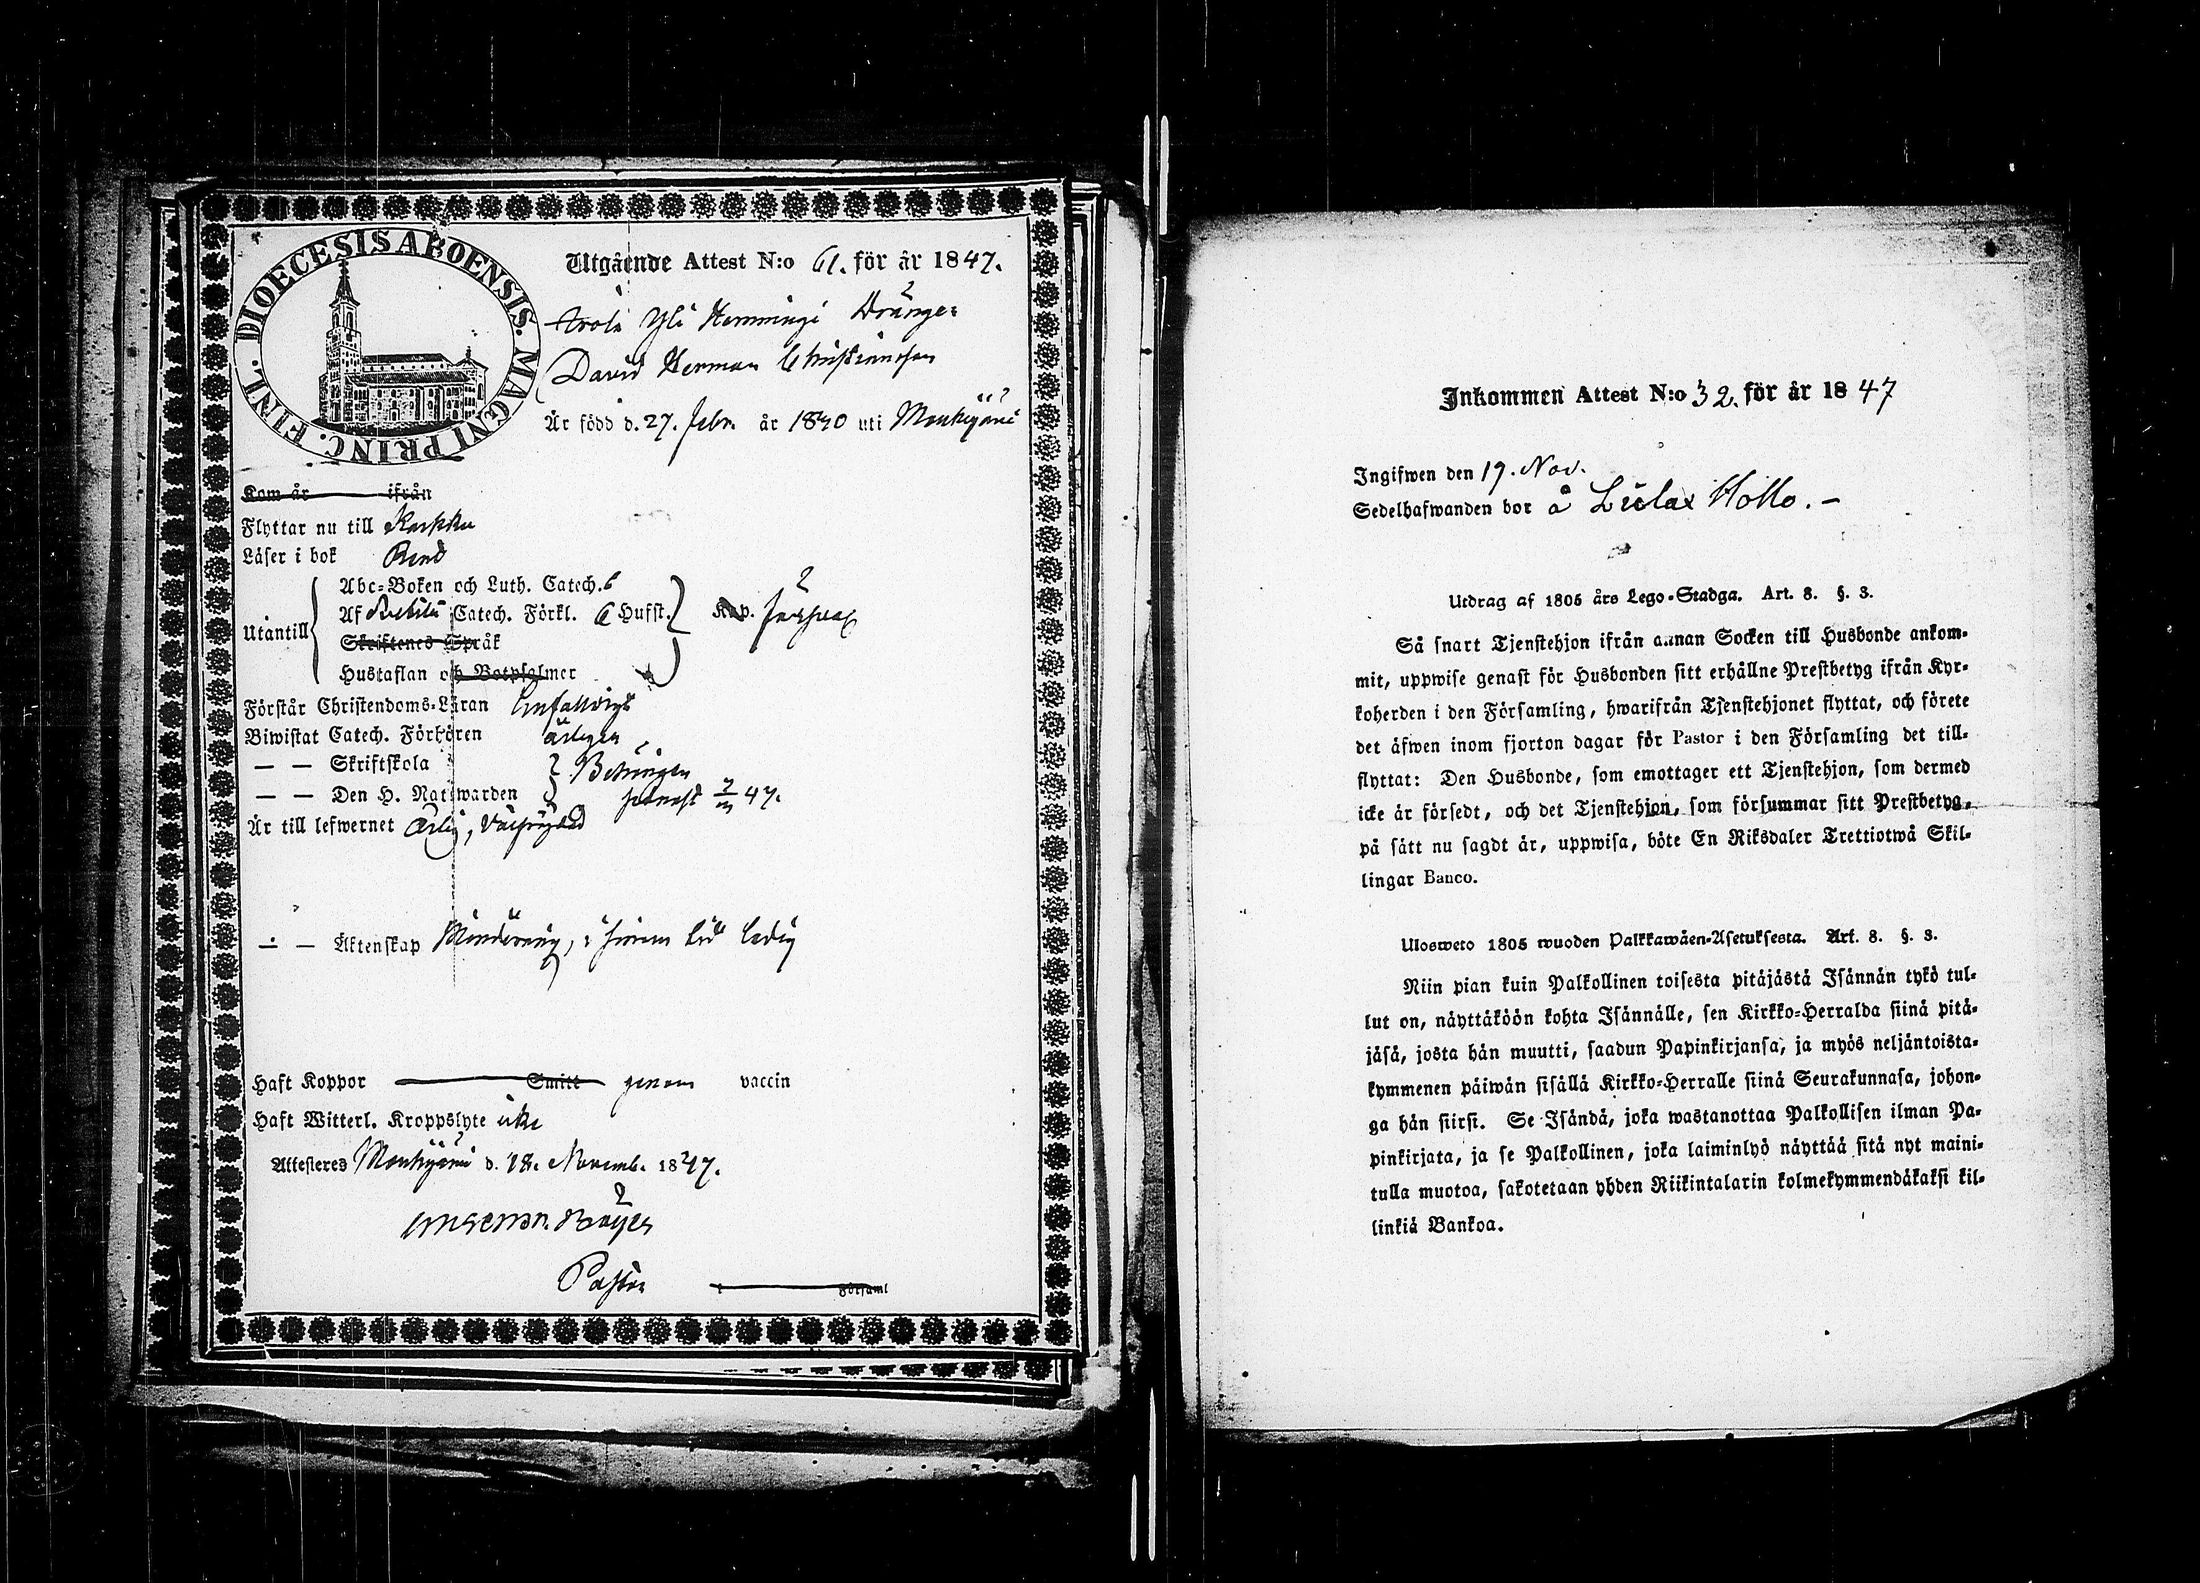 DIOECESIS ABOENSIS. MAGNI PRINC. FINL.
Utgående Attest N:o 61. för år 1847.
Yli Hemmingi Dränge:
David Herman Christiansson
Är född d. 27. Febr. år 1830 uti Mouhijärvi
Kom år ifrån
Flyttar nu till Karkku
Läser i bok Rent
Utantill
Abc-Boken och Luth. Catech. 6
Af Catech. Förkl. 6 Hufst. Kap.
Skriftenes Språk
Hustaflan och Botpsalmer
Förstår Christendoms-Läran Enfaldigt
Biwistat Catech. Förhören årligen
— — Skriftskola
— — Den H. Nattwarden
Betingen senast 47.
Är till lefwernet Ärlig, Välfrejdad
— — Äktenskap Minderårig, i finsm tid ledig
Haft Koppor Smitt genom vaccin
Haft Witterl. Kroppslyte icke
Attesteres Mouhijärvi d. 18. Novemb. 1847.
Pastor
i Församl
Inkommen Attest N:o 32. för år 1847
Ingifwen den 19. Nov.
Sedelhafwanden bor å Hollo. —
Utdrag af 1805 års Lego-Stadga. Art. 8. §. 3.
Så snart Tjenstehjon ifrån annan Socken till Husbonde ankom-
mit, uppwise genast för Husbonden sitt erhållne Prestbetyg ifrån Kyr-
koherden i den Församling, hwarifrån Tjenstehjonet flyttat, och förete
det äfwen inom fjorton dagar för Pastor i den Församling det till-
flyttat: Den Husbonde, som emottager ett Tjenstehjon, som dermed
icke är försedt, och det Tjenstehjon, som försummar sitt Prestbetyg,
på sätt nu sagdt är, uppwisa, böte En Riksdaler Trettiotwå Skil-
lingar Banco.
Ulosweto 1805 wuoden Palkkawäen-Asetuksesta. Art. 8. §. 3.
Niin pian kuin Palkollinen toisesta pitäjästä Isännän tykö tul-
lut on, näyttäköön kohta Isännälle, sen Kirkko-Herralda siinä pitä-
jäsä, josta hän muutti, saadun Papinkirjansa, ja myös neljäntoista-
kymmenen päiwän sisällä Kirkko-Herralle siinä Seurakunnasa, johon-
ga hän siirsi. Se Isändä, joka wastanottaa Palkollisen ilman Pa-
pinkirjata, ja se Palkollinen, joka laiminlyö näyttää sitä nyt maini-
tulla muotoa, sakotetaan yhden Riikintalarin kolmekymmendäkaksi kil-
linkiä Bankoa.